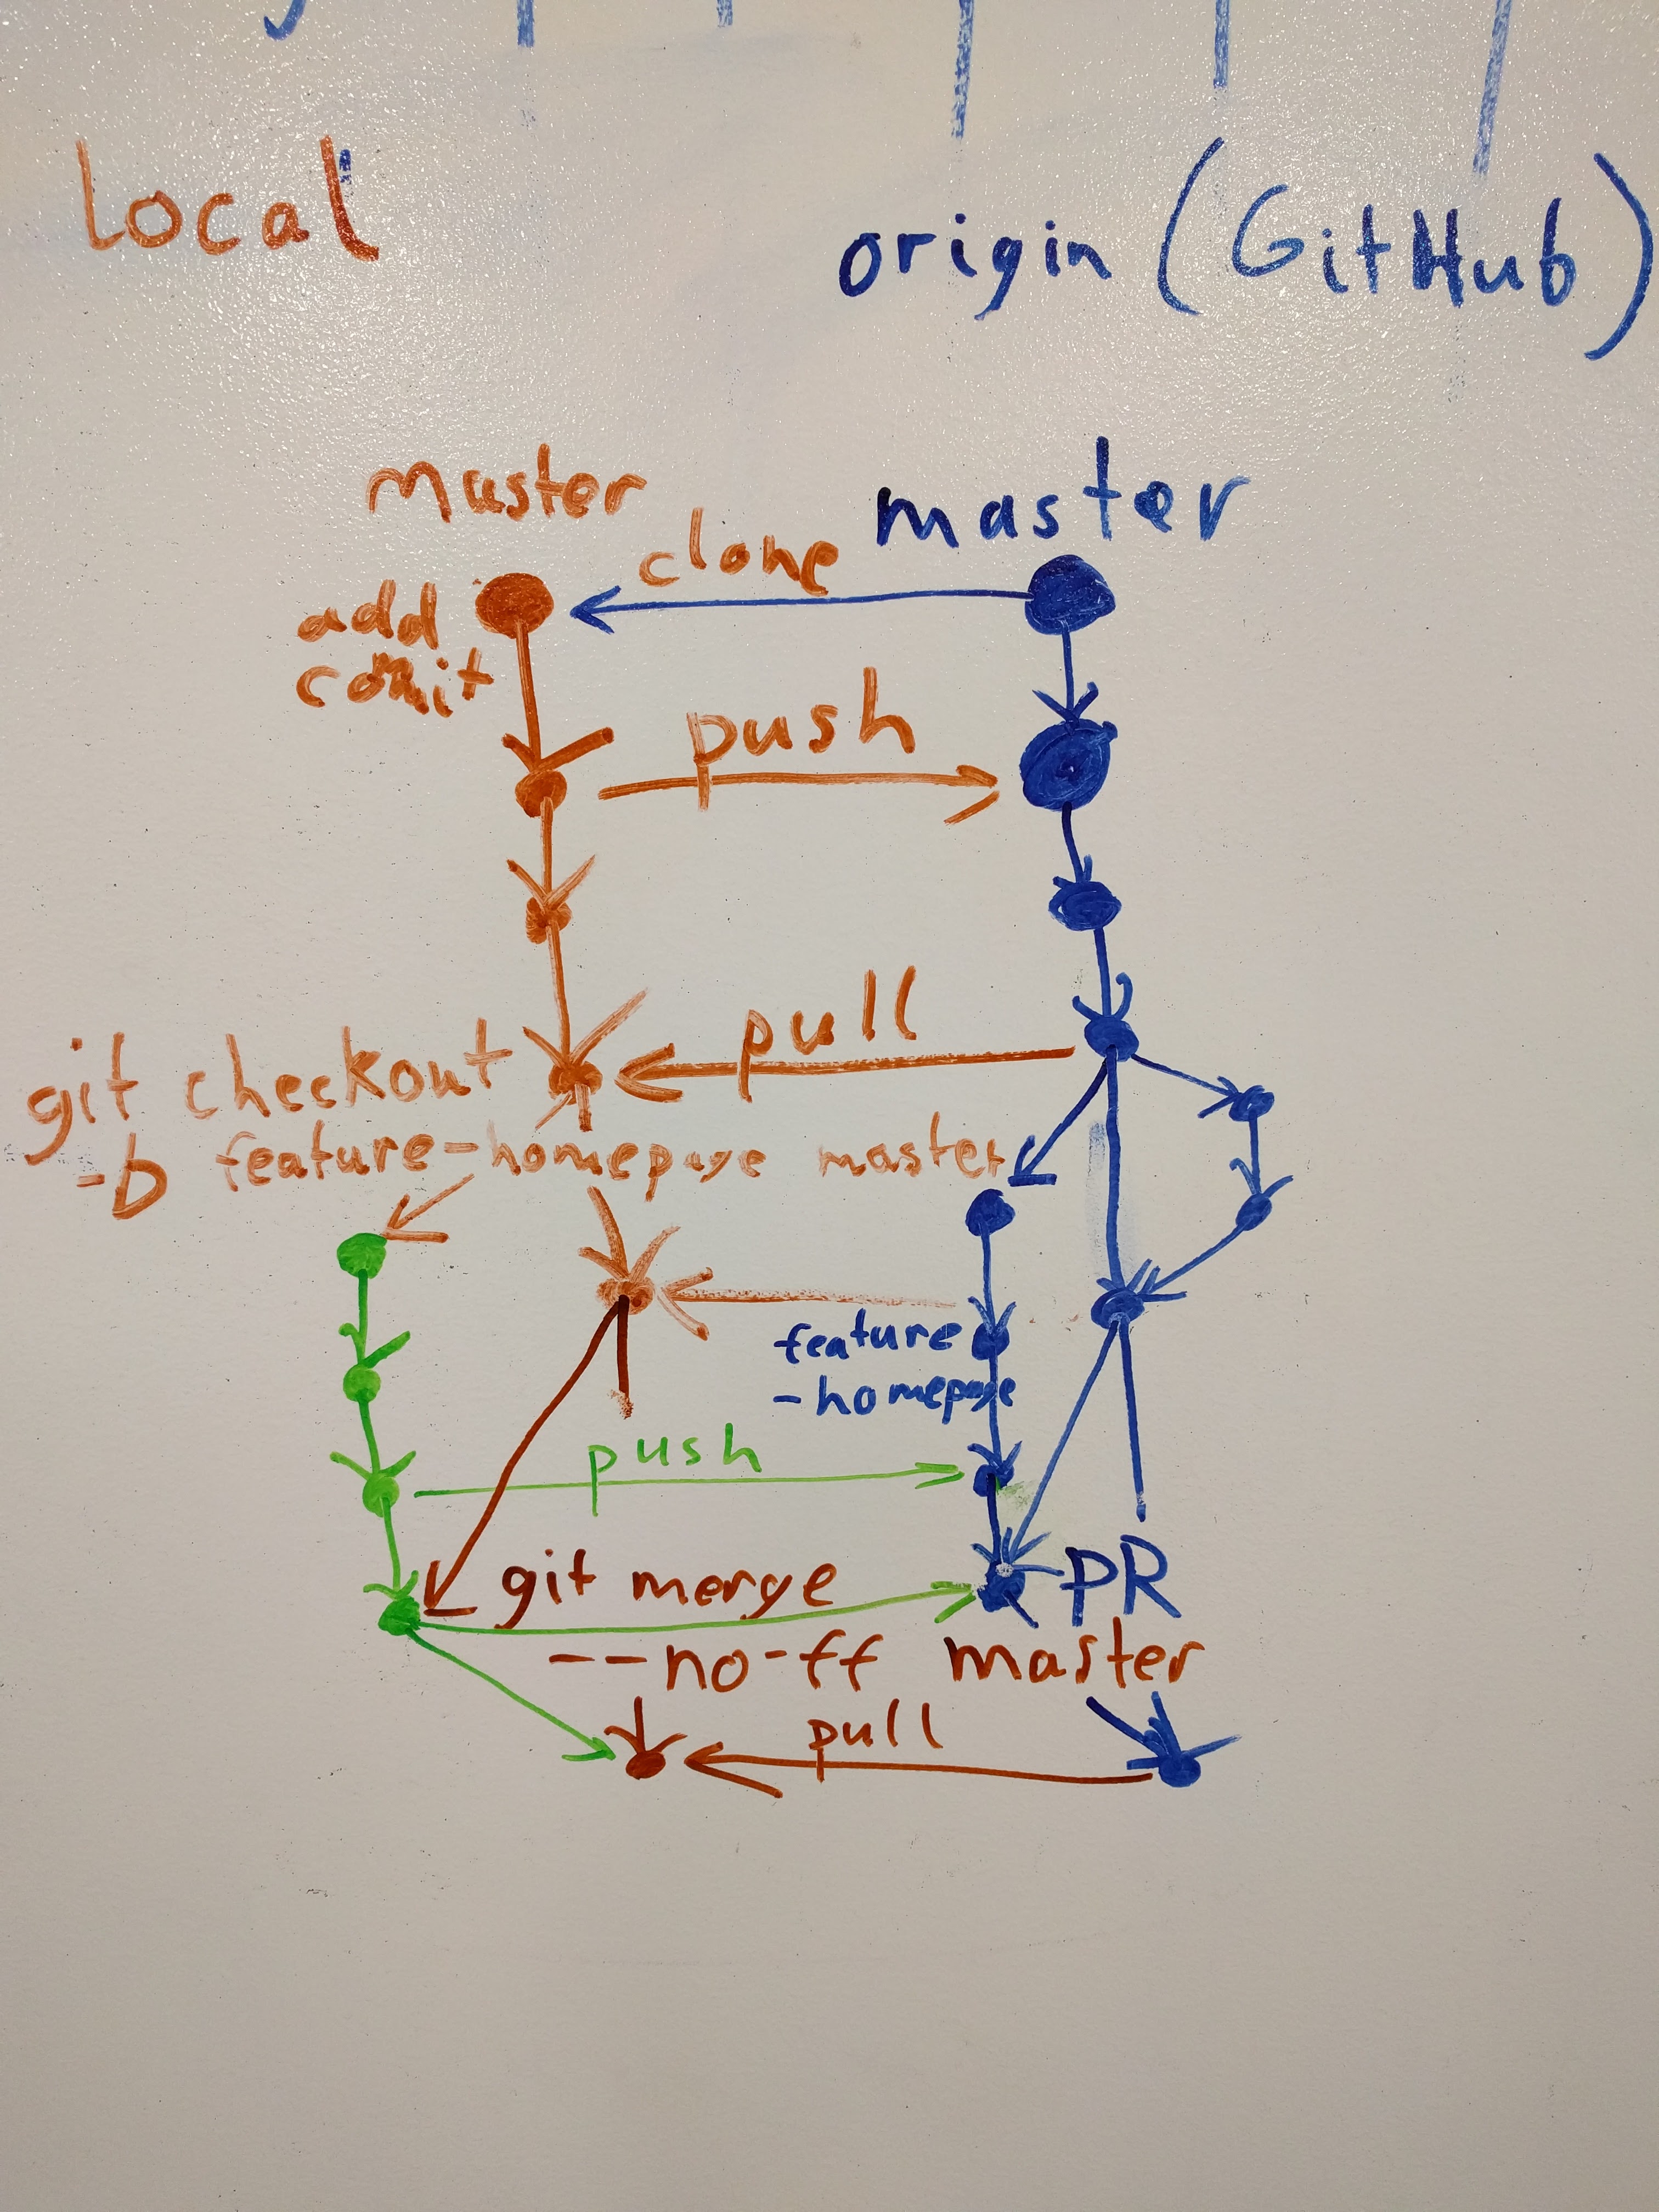 local
origin (GitHub)
master
master
clone
add
commit
push
pull
git checkout
-b feature-homepage master
feature
-homepage
push
git merge
PR
--no-ff master
pull